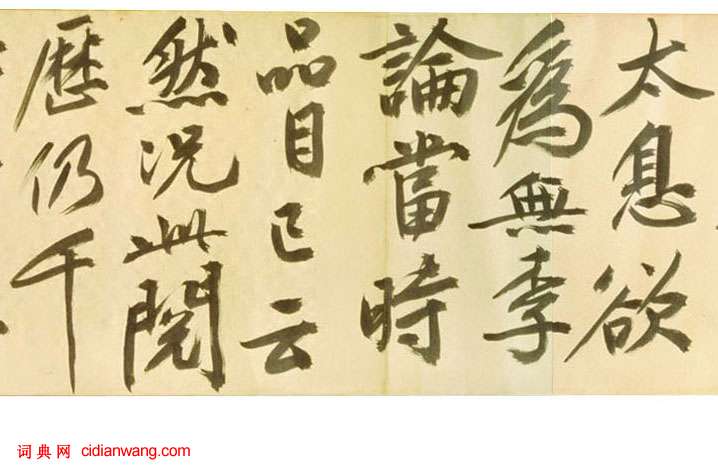 太息欲
為無李
論當時
品目已云
然況此閱
歷仍千
词典网 cidianwang.com